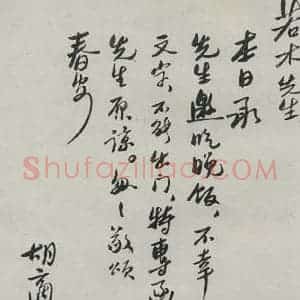 若木先生
本日承
先生邀吃晚飯,不幸
又不能出門,特專函
先生原諒。匆匆敬頌
春安
胡適
Shufaziliao.com